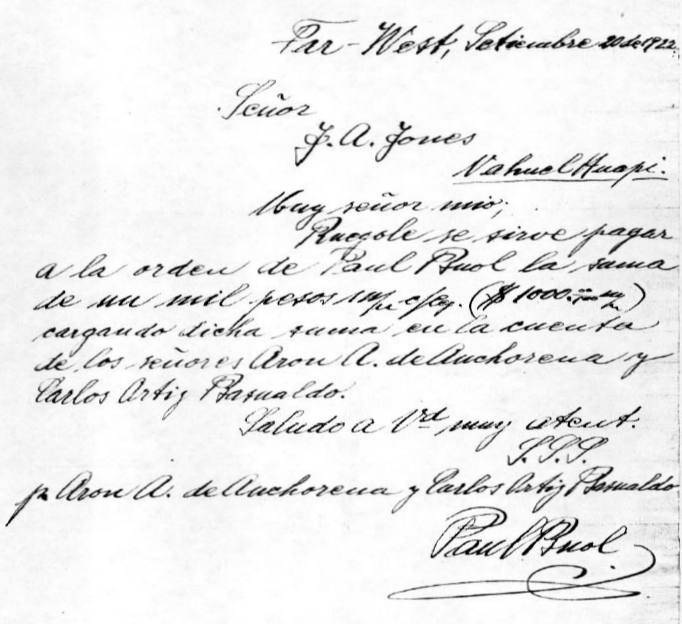 Far-West, Setiembre 20 de 1922.
Señor
J. A. Jones
Nahuel Huapi.
Muy señor mio;
Ruegole se sirve pagar
a la orden de Paul Buol la suma
de un mil pesos m/n c/leg. ($ 1000.- m/n)
cargando dicha suma en la cuenta
de los señores Aron A. de Anchorena y
Carlos Ortiz Basualdo.
Saludo a Vd muy atent.
S.S.S.
p Aron A. de Anchorena y Carlos Ortiz Basualdo
Paul Buol